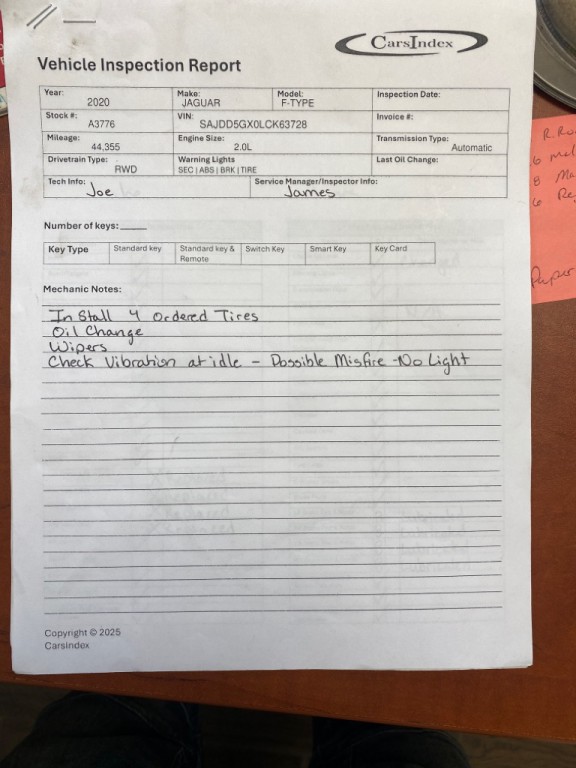 CarsIndex
Vehicle Inspection Report
Year: 2020 Make: JAGUAR Model: F-TYPE Inspection Date:
Stock #: A3776 VIN: SAJDD5GX0LCK63728 Invoice #:
Mileage: 44,355 Engine Size: 2.0L Transmission Type: Automatic
Drivetrain Type: RWD Warning Lights SEC | ABS | BRK | TIRE Last Oil Change:
Tech Info: Joe Service Manager/Inspector Info: James
Number of keys:
Key Type Standard key Standard key & Remote Switch Key Smart Key Key Card
Mechanic Notes:
Install 4 ordered Tires
Oil Change
Wipers
Check Vibration at idle - Possible Misfire -No Light
Copyright © 2025
CarsIndex
R.
6
8
6